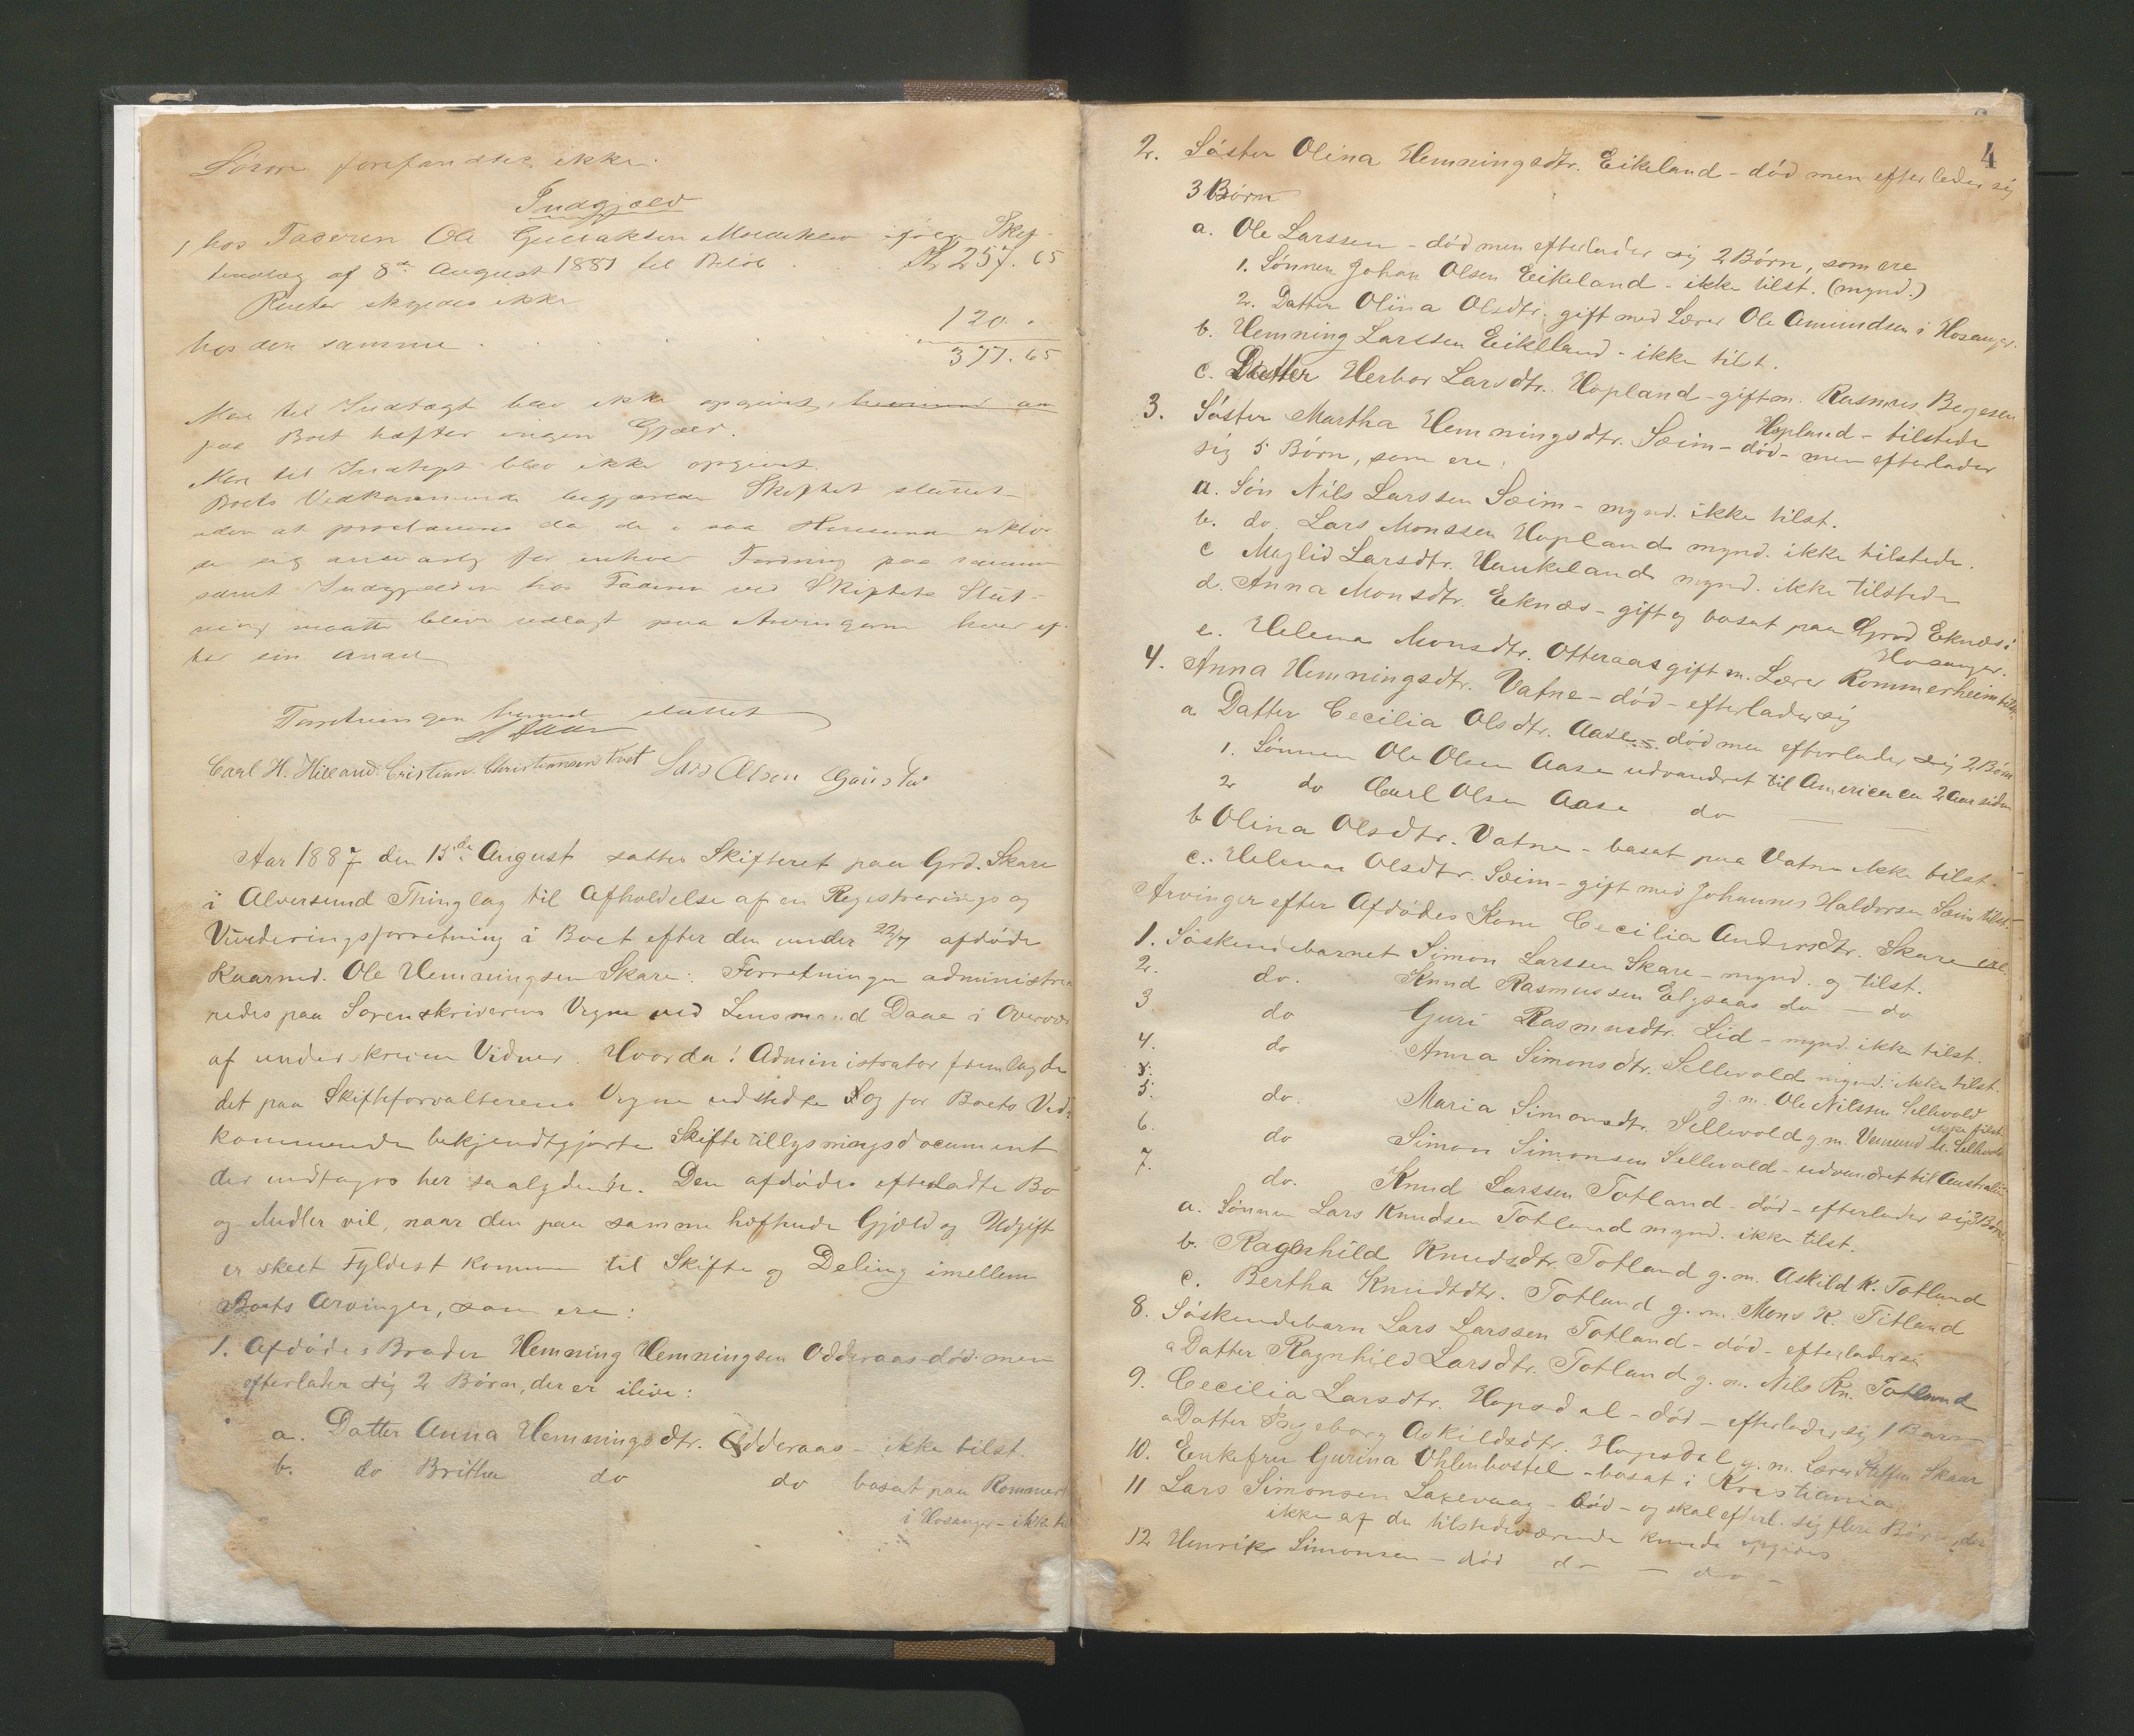 Løsøre forefandtes ikke.
Indgjæld
1 hos Faderen Ole ifølge Skif-
tendlæg af 8de August 1881 til Beløb Kr 257.65
Renter ikke
120 .
hos den samme . . . . .
377.65
Mere til Indtægt blev ikke opgivet,
paa Boet hæfter ingen Gjæld.
Mere til Indtægt blev ikke opgivet.
Boets Vedkommende begjærede Skiftet sluttet
uden at proclamere da de i saa Henseende erklær
de sig ansvarlig for enhver Fordring paa samme
samt Indgjælden hos Faderen ved Skiftets Slut-
ning maatte blive udlagt paa Arvingerne hver ef-
ter sin Andel
Forretningen hermed sluttet
Daae
Carl H. Hilland. Cristian Christiansen Tvet Lars Olsen
Aar 1887 den 15de August sattes Skifteret paa Grd. Skare
i Alversund Thinglag til Afholdelse af en Registrerings og
Vurderingsforretning i Boet efter den under 22/7 afdøde
Kaarmd. Ole Hemningsen Skare: Forretningen administre-
redes paa Sorenskriverens Vegne ved Lensmand Daae i Overvær
af underskrevne Vidner. Hvorda! Administrator fremlagde
det paa Skifteforvalterens Vegne udstedte og for Boets Ved-
kommende bekjendtgjorte Skiftetillysningsdocument
der indtages her saalydende. Den afdødes efterladte Bo
og Midler vil, naar den paa samme heftende Gjæld og Udgift
er skeet Fyldest komme til Skifte og Deling imellem
Boets Arvinger, som ere:
1. Afdødes Broder Hemning Hemningsen Odderaas død men
efterlader sig 2 Børn, der er ilive:
a. Datter Anna Hemningsdtr. Odderaas - ikke tilst.
b. do Britha do do bosat paa Rommer
i Hosanger - ikke til
4
2. Søster Olina Hemningsdtr. Eikeland - død men efterlader sig
3 Børn
a. Ole Larssen - død men efterlader sig 2 Børn, som ere
1. Sønnen Johan Olsen Eikeland - ikke tilst. (mynd.)
2. Datter Olina Olsdtr. gift med Lærer Ole Amundsen i Hosanger.
b. Hemning Larssen Eikeland - ikke tilst.
c. Datter Herbor Larsdtr. Hopland - gift m. Rasmus Bergesen
Hopland - tilstede
3. Søster Martha Hemningsdtr. Sæim - død - men efterlader
sig 5 Børn, som ere:
a. Søn Nils Larssen Sæim - mynd. ikke tilst.
b. do. Lars Monssen Hopland mynd. ikke tilstede.
c Maglid Larsdtr. Haukeland mynd. ikke tilstede
d. Anna Monsdtr. Eknæs - gift og bosat paa Grd Eknæs i
Hosanger.
e. Helena Monsdtr. Otteraas gift m. Lærer Rommerheim tilst.
4. Anna Hemningsdtr. Vatne - død - efterlader sig
a Datter Cecilia Olsdtr. Aase - død men efterlader sig 2 Børn
1. Sønnen Ole Olsen Aase udvandret til America ca 2 Aar siden
2 do Carl Olsen Aase do
b Olina Olsdtr. Vatne - bosat paa Vatne ikke tilst.
c. Helena Olsdtr. Sæim - gift med Johannes Haldorsen Sæim tilst.
Arvinger efter Afdødes Kone Cecilia Andersdtr. Skare ere:
1. Søskendebarnet Simon Larssen Skare - mynd. og tilst.
2. do. Knud Rasmussen Elgsaas do - do
3 do Guri Rasmusdtr. Lid - mynd. ikke tilst.
4. do Anna Simonsdtr. Sellevold mynd. ikke tilst.
g. m. Ole Nilssen Sellevold
5. do. Maria Simonsdtr. Sellevold g. m. Vemund M. Sellevold
ikke tilst.
6. do Simon Simonsen Sellevold - udvandret til Australien
7. do. Knud Larssen Totland - død - efterlader sig 3 Børn.
a. Sønnen Lars Knudsen Totland mynd. ikke tilst.
b. Ragnhild Knudsdtr. Totland g. m. Askild K. Totland
c. Bertha Knudsdtr. Totland g. m. Mons K. Titland
8. Søskendebarn Lars Larssen Totland - død - efterlader sig
a Datter Ragnhild Larsdtr. Totland g. m. Nils Kn. Totland
9. Cecilia Larsdtr. Hopsdal - død - efterlader sig 1 Barn
a Datter Ingeborg Askildsdtr. Hopsdal g. m. Lærer Steffen Skaar
10. Enkefru Gurina Ohlenbostel - bosat i Kristiania
11 Lars Simonsen Laxevaag - død - og skal efterl. sig flere Børn, der
ikke af de tilstedeværende kunde opgives
12 Henrik Simonsen - død do - do -